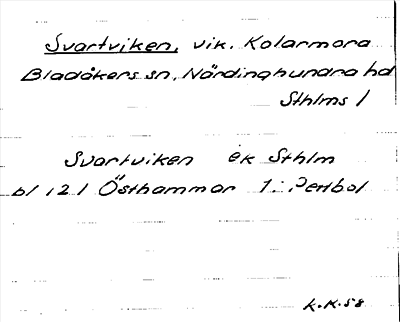 Svartviken, vik. Kolarmora
Bladåkers sn, Närdinghundra hd
Sthlms l
Svartviken ek Sthlm
bl 121 Östhammar 1:
K.K.58